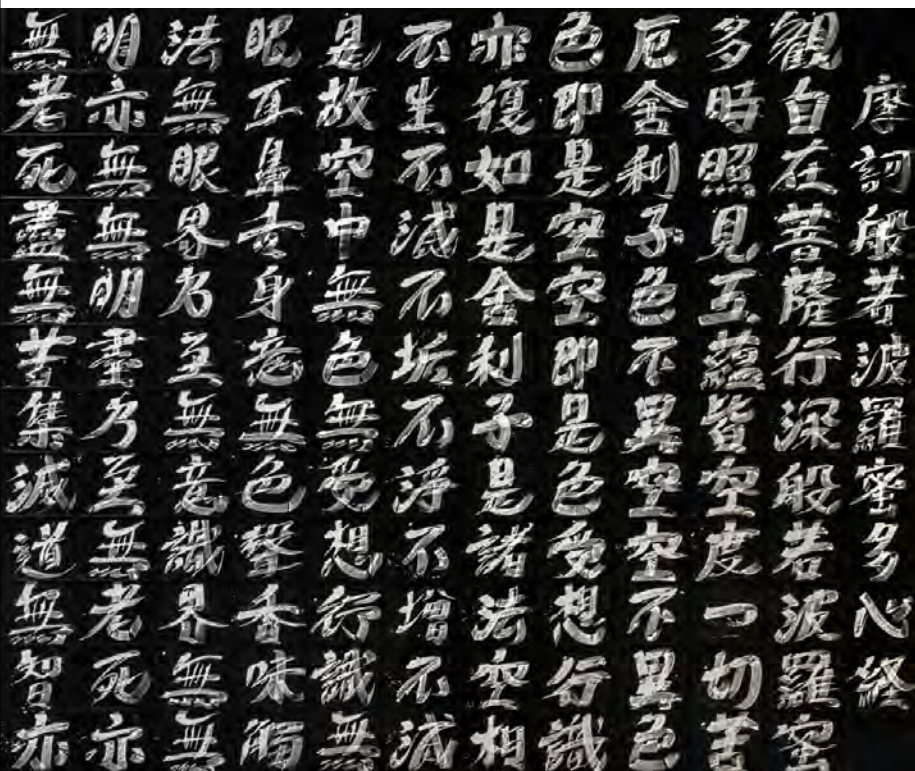 摩訶般若波羅蜜多心経
觀自在菩薩行深般若波羅蜜
多時照見五蘊皆空度一切苦
厄舍利子色不異空空不異色
色即是空空即是色受想行識
亦復如是舍利子是諸法空相
不生不滅不垢不淨不增不減
是故空中無色無受想行識無
眼耳鼻舌身意無色聲香味觸
法無眼界乃至無意識界無無
明亦無無明盡乃至無老死亦
無老死盡無苦集滅道無智亦